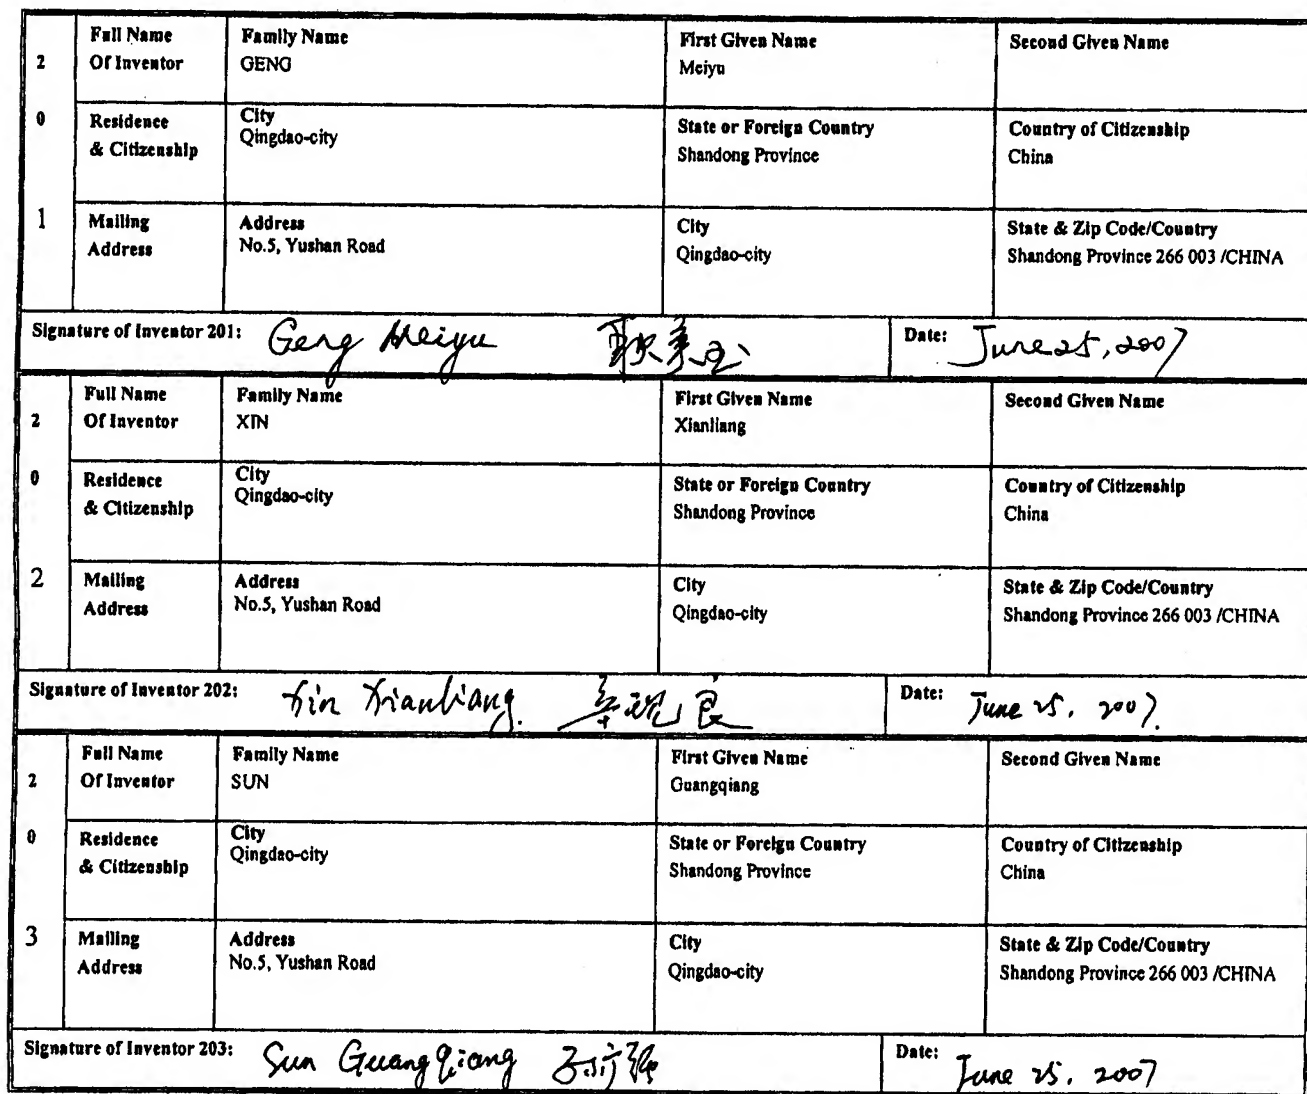 Full Name Of Inventor Family Name GENG First Given Name Meiyu Second Given Name
2 0 1
Residence & Citizenship City Qingdao-city State or Foreign Country Shandong Province Country of Citizenship China
Mailing Address Address No.5, Yushan Road City Qingdao-city State & Zip Code/Country Shandong Province 266 003 /CHINA
Signature of Inventor 201: Geng Meiyu 耿美玉 Date: June 25, 2007
Full Name Of Inventor Family Name XIN First Given Name Xianliang Second Given Name
2 0 2
Residence & Citizenship City Qingdao-city State or Foreign Country Shandong Province Country of Citizenship China
Mailing Address Address No.5, Yushan Road City Qingdao-city State & Zip Code/Country Shandong Province 266 003 /CHINA
Signature of Inventor 202: Xin Xianliang. Date: June 25, 2007.
Full Name Of Inventor Family Name SUN First Given Name Guangqiang Second Given Name
2 0 3
Residence & Citizenship City Qingdao-city State or Foreign Country Shandong Province Country of Citizenship China
Mailing Address Address No.5, Yushan Road City Qingdao-city State & Zip Code/Country Shandong Province 266 003 /CHINA
Signature of Inventor 203: Sun Guang Qiang Date: June 25, 2007